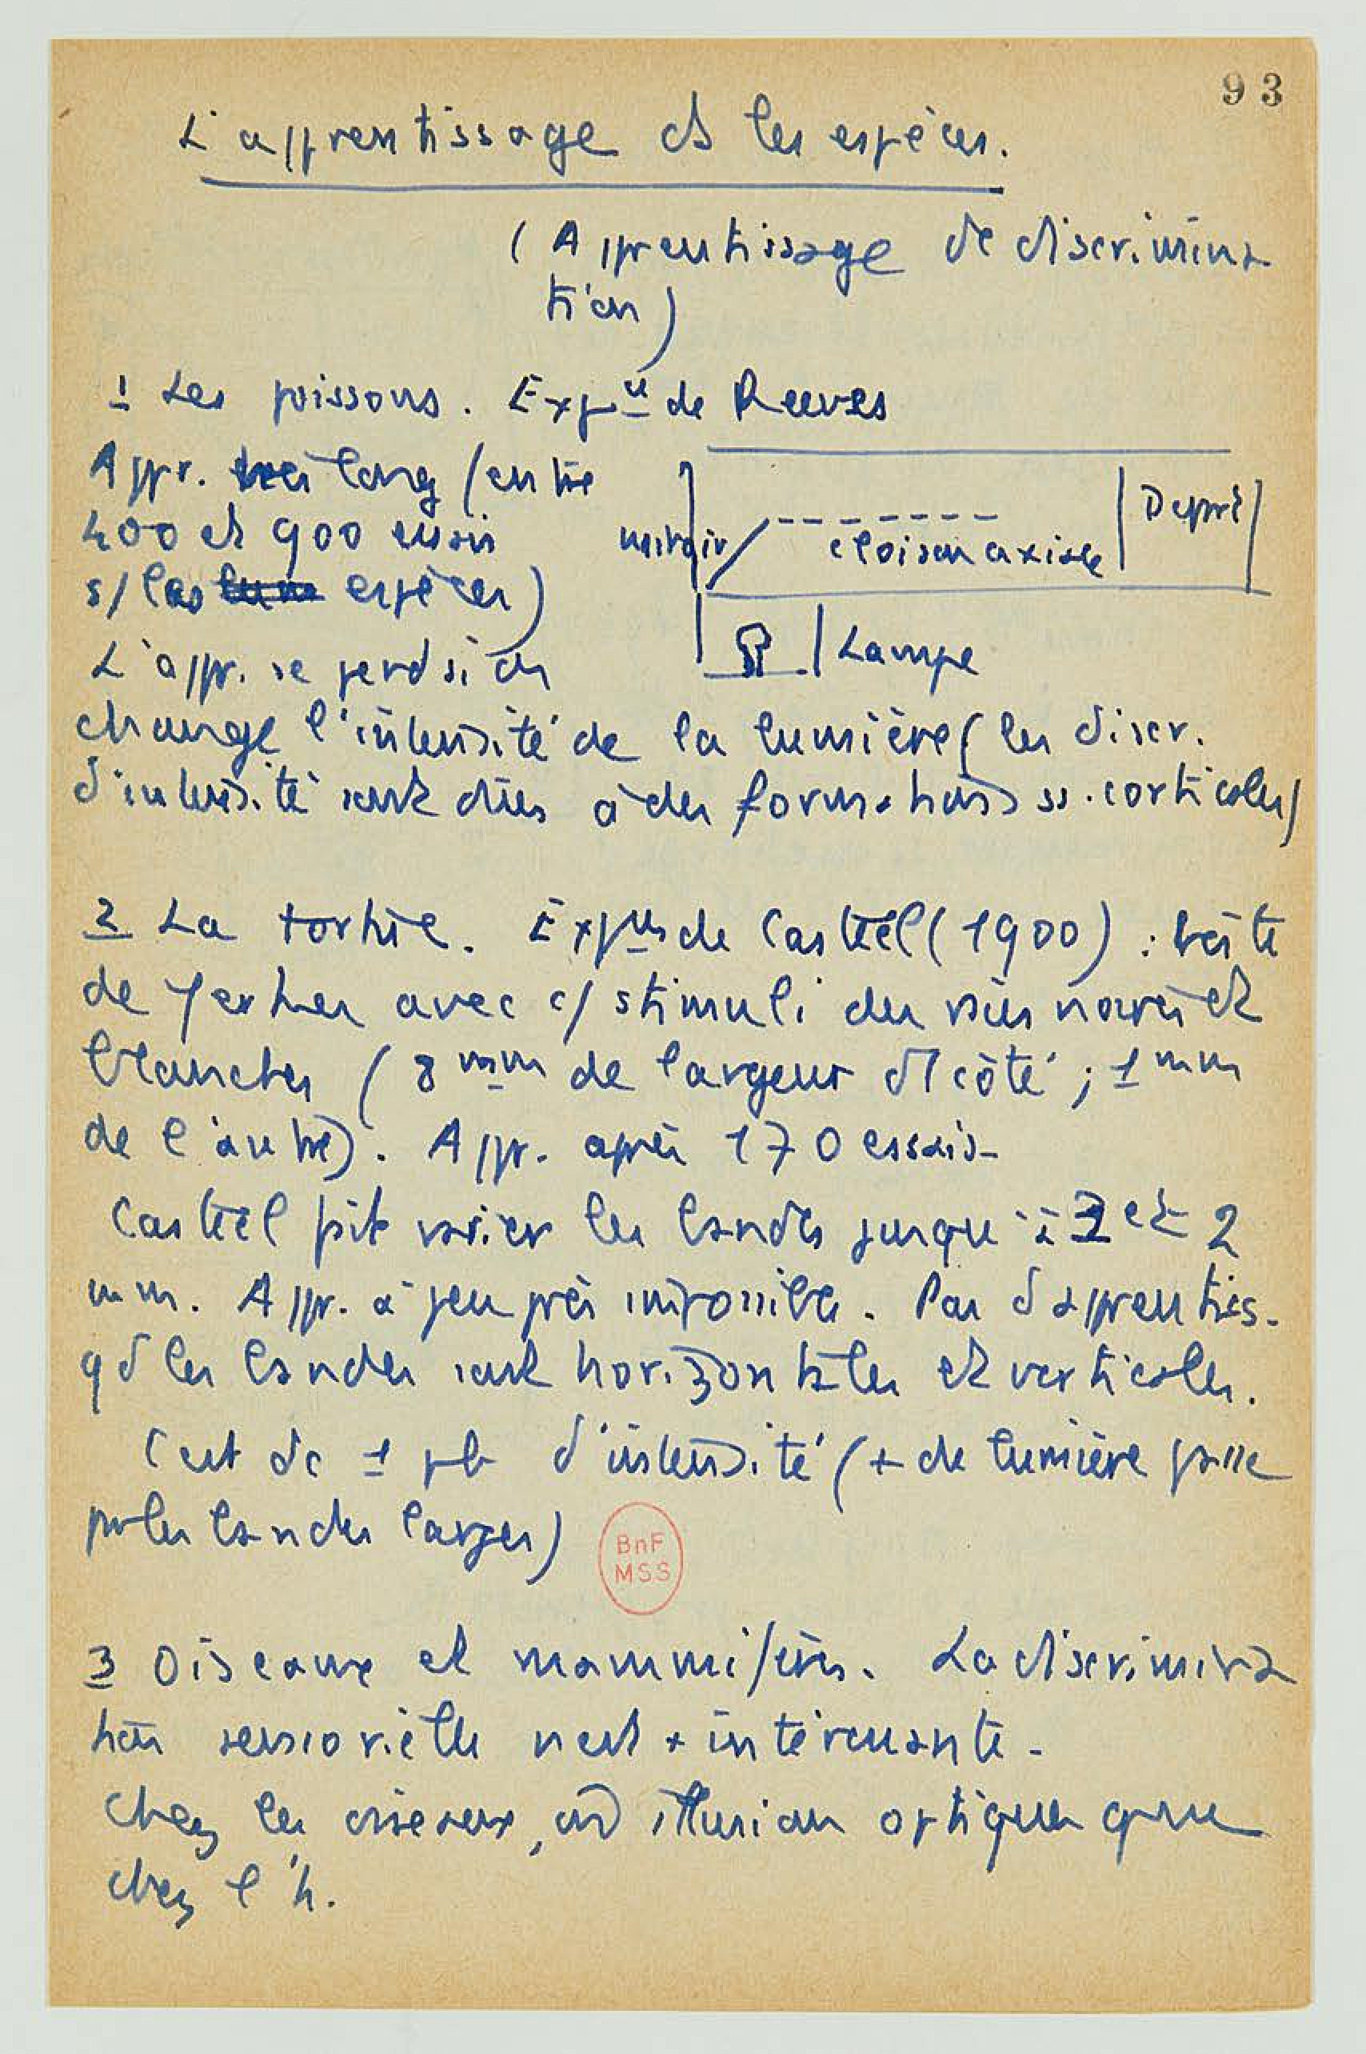 93
L'apprentissage et les espèces.
(Apprentissage de discrimina
tion)
1 Les poissons. Expce de Reeves
Appr. très long (entre
400 et 900 essais
s/ les espèces)
miroir
cloison axiale
Départ
Lampe
L'appr. se perd si on
change l'intensité de la lumière (les discr.
d'intensité sont dûes à des formations ss. corticales)
2 La tortue. Expces de Casteel (1900) : boîte
de Yerkes avec c/ stimuli des raies noires et
blanches (8 mm de largeur d'1 côté ; 1 mm
de l'autre). Appr. après 170 essais-
Casteel fit varier les bandes jusqu'à et 2
mm. Appr. à peu près impossible. Pas d'apprentiss.
qd les bandes sont horizontales et verticales.
C'est dc 1 pb d'intensité (+ de lumière passe
pr les bandes larges)
BnF
MSS
3 Oiseaux et mammifères. La discrimina
tion sensorielle n'est + intéressante-
Chez les oiseaux, illusion optiques que
chez l'h.